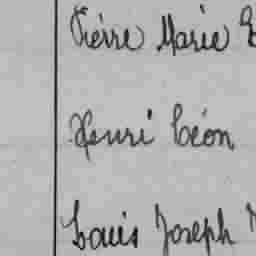 Pierre Marie
Henri Léon
Louis Joseph